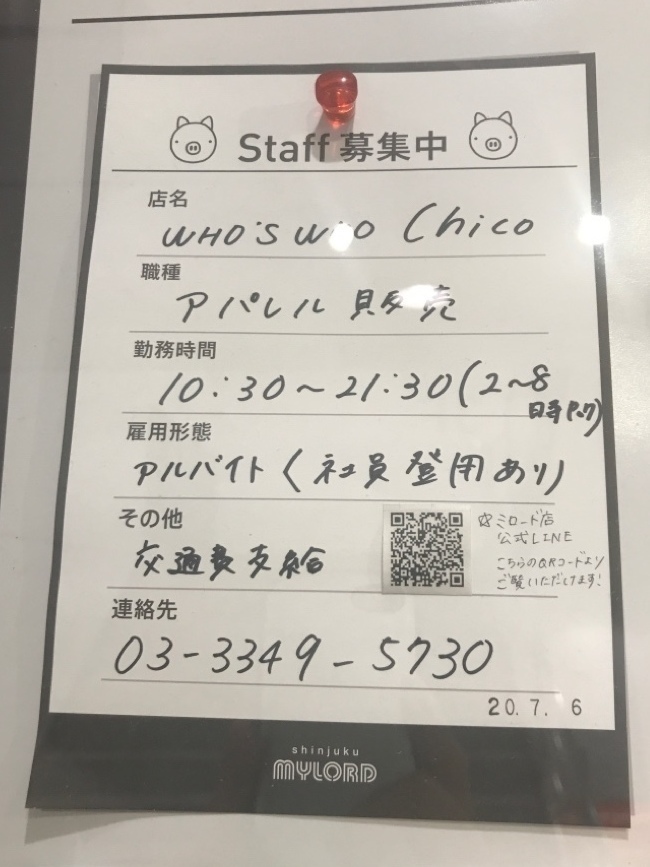 Staff 募集中
店名
WHO'S WHO Chico
職種
アパレル 販売
勤務時間
10:30〜21:30(2〜8
時間)
雇用形態
アルバイト(社員登用あり)
その他
交通費支給
☆ミロード店
公式LINE
こちらのQRコードより
ご覧いただけます!
連絡先
03-3349-5730
20.7.6
shinjuku
MYLORD